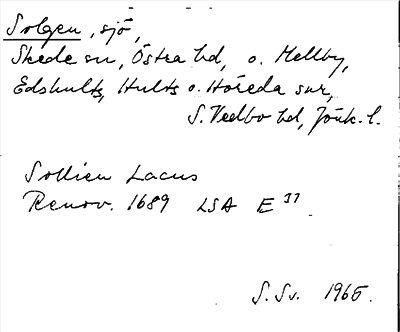 Solgen, sjö,
Skede sn, Östra hd, o. Mellby,
Edshults, Hults o. Höreda snr,
S. Vedbo hd, Jönk. l.
Sollien Lacus
Renov. 1689 LSA E 37.
S. Sv. 1965.